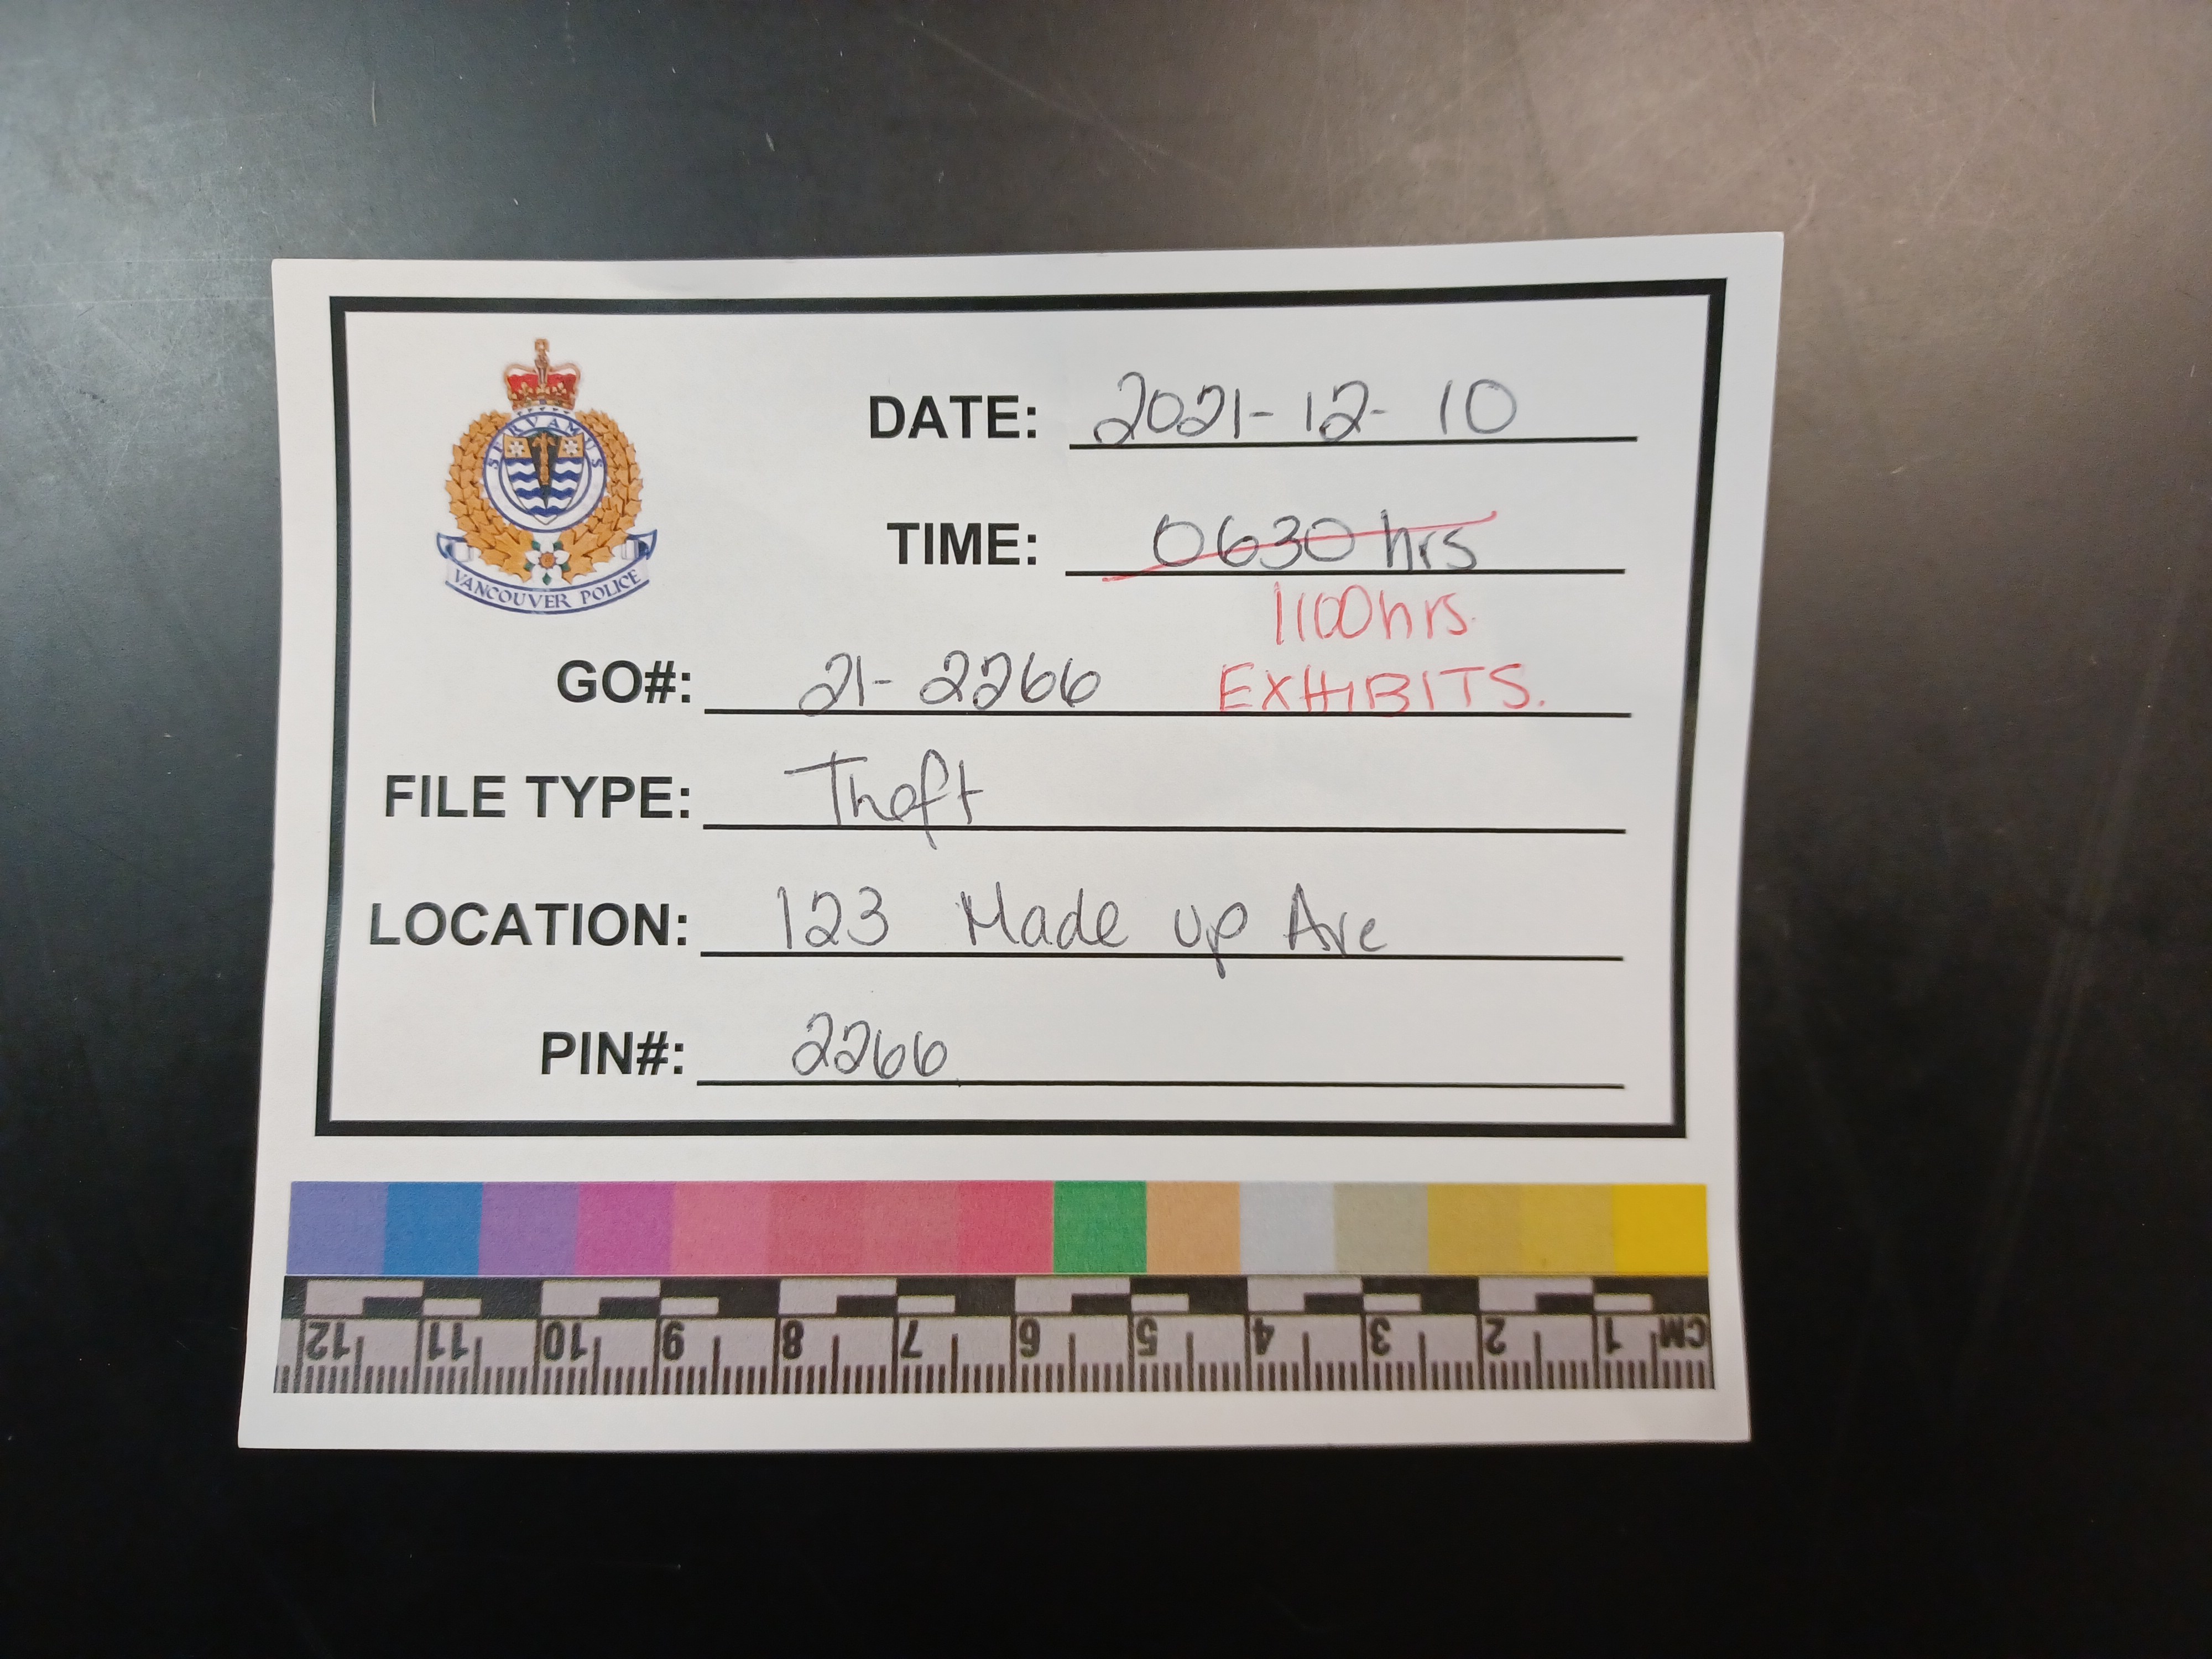 SERVAMUS
VANCOUVER POLICE
DATE: 2021-12-10
TIME: 0630 hrs
1100hrs.
GO#: 21-2266 EXHIBITS.
FILE TYPE: Theft
LOCATION: 123 Made up Ave
PIN#: 2266
12 11 10 9 8 7 6 5 4 3 2 1 CM